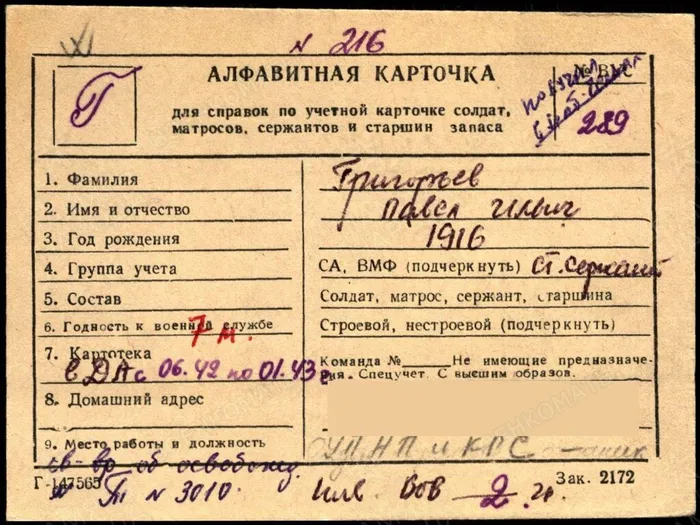 N 216
Г
АЛФАВИТНАЯ КАРТОЧКА
для справок по учетной карточке солдат,
матросов, сержантов и старшин запаса
№ ВУС
289
1. Фамилия
Григорьев
2. Имя и отчество
Павел Ильич
3. Год рождения
1916
4. Группа учета
СА, ВМФ (подчеркнуть) Ст. сержант
5. Состав
Солдат, матрос, сержант, старшина
6. Годность к военной службе
7 м.
Строевой, нестроевой (подчеркнуть)
7. Картотека
в ДА с 06.42 по 01.43 г
Команда №____ Не имеющие предназначе-
ния. Спецучет. С высшим образов.
8. Домашний адрес
9. Место работы и должность
св-во об освобожд.
Г-147565
Зак. 2172
N 3010.
Инв. ВОВ 2 гр.